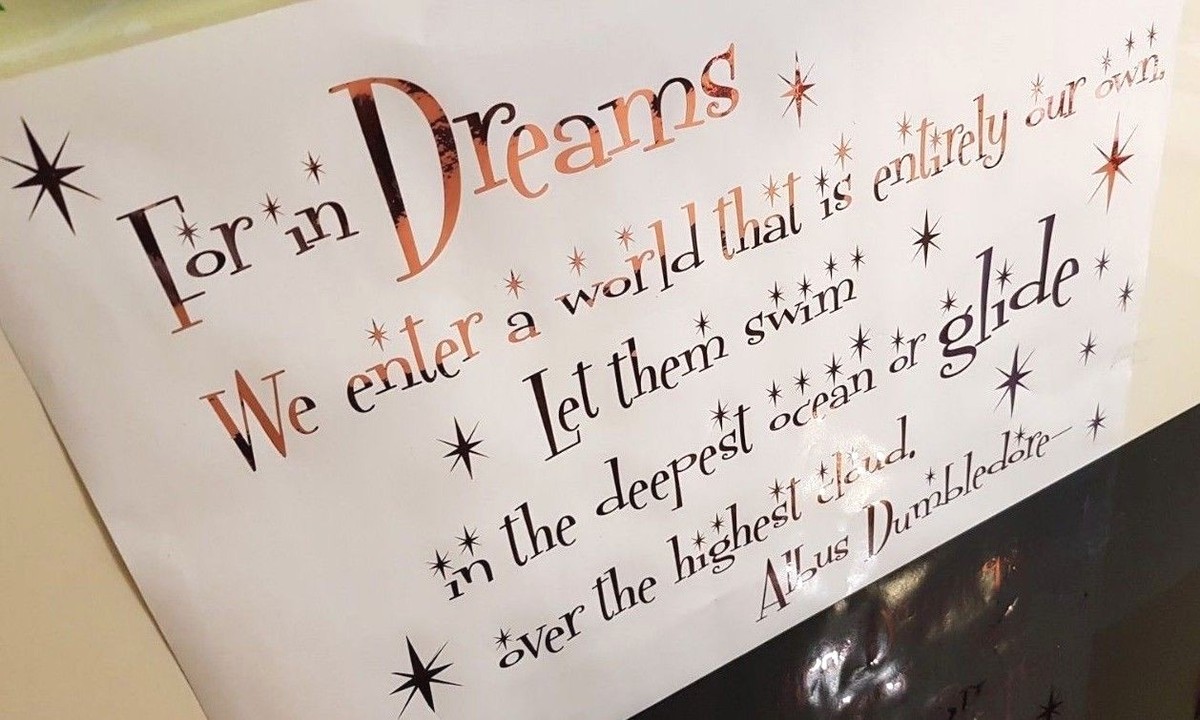 For in Dreams
We enter a world that is entirely our own.
Let them swim
in the deepest ocean or glide
over the highest cloud.
Albus Dumbledore